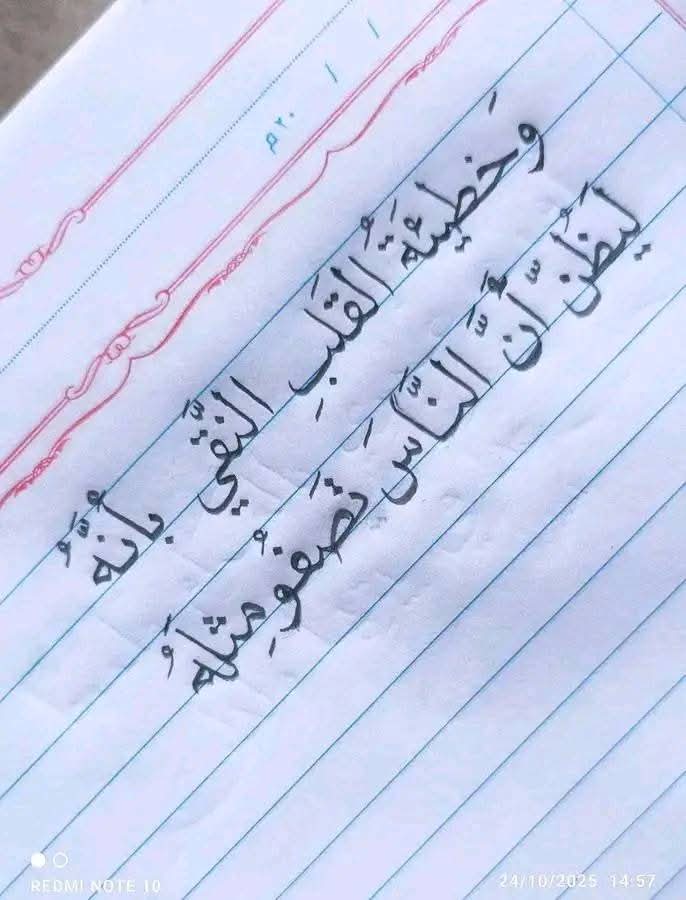 وَخطيئَةُ القَلبِ النقَّي بأنَّهُ
ليَظُنّ أنَّ النَّاسَ تَصْفُو مِثلَهُ
٢٠ م / /
REDMI NOTE 10
24/10/2025 14:57